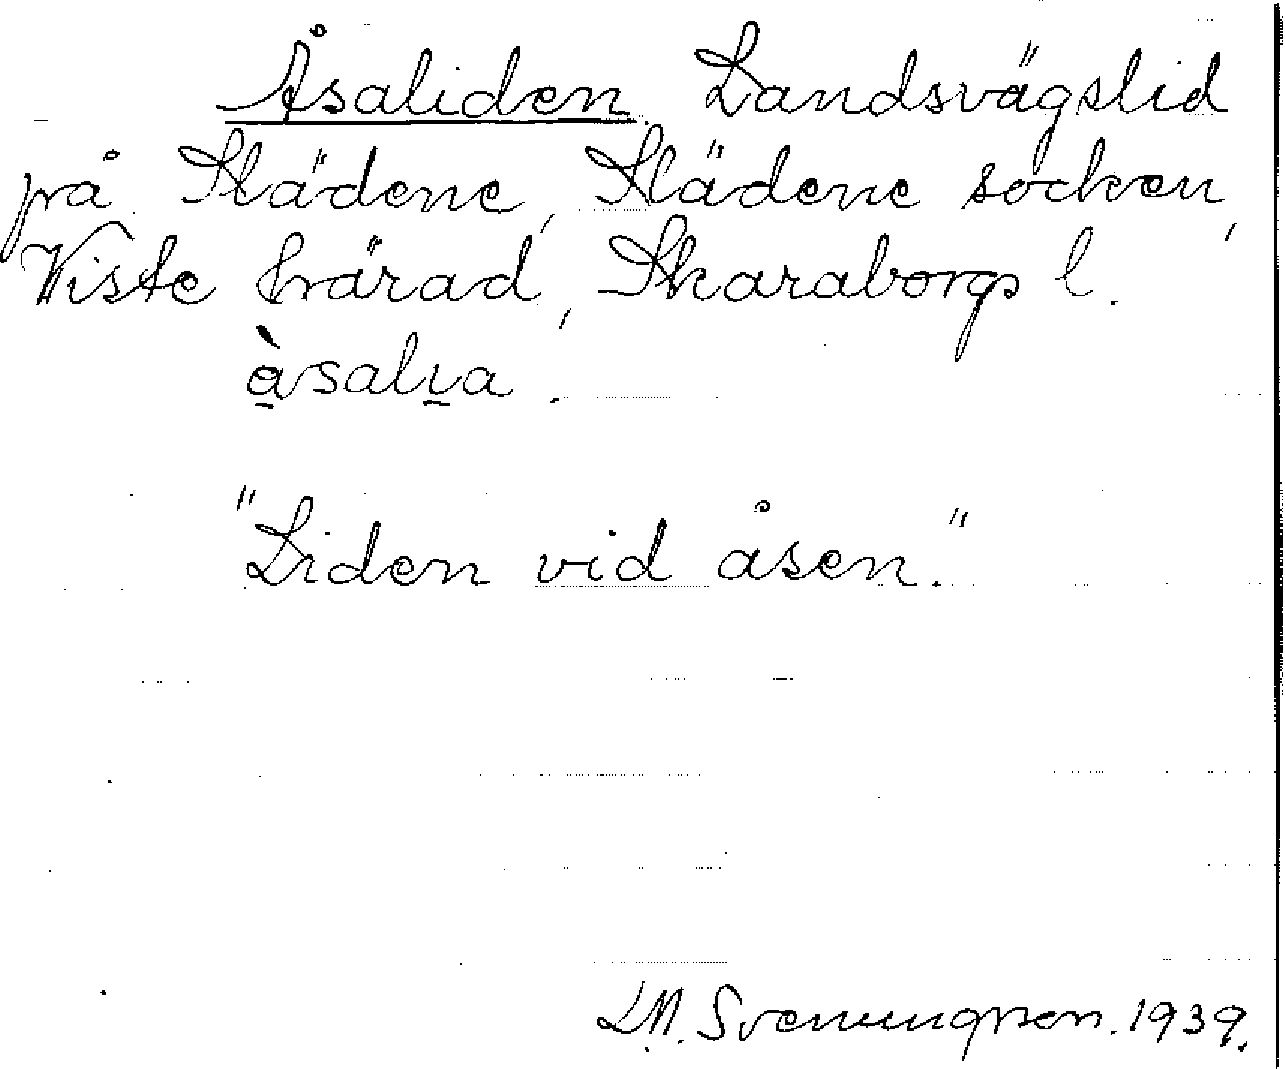 Åsaliden. Landsvägslid
på Slädene, Slädene socken,
Viste härad, Skaraborgs l.
åsalia.
"Liden vid åsen."
L.M. Svenungsson. 1939.